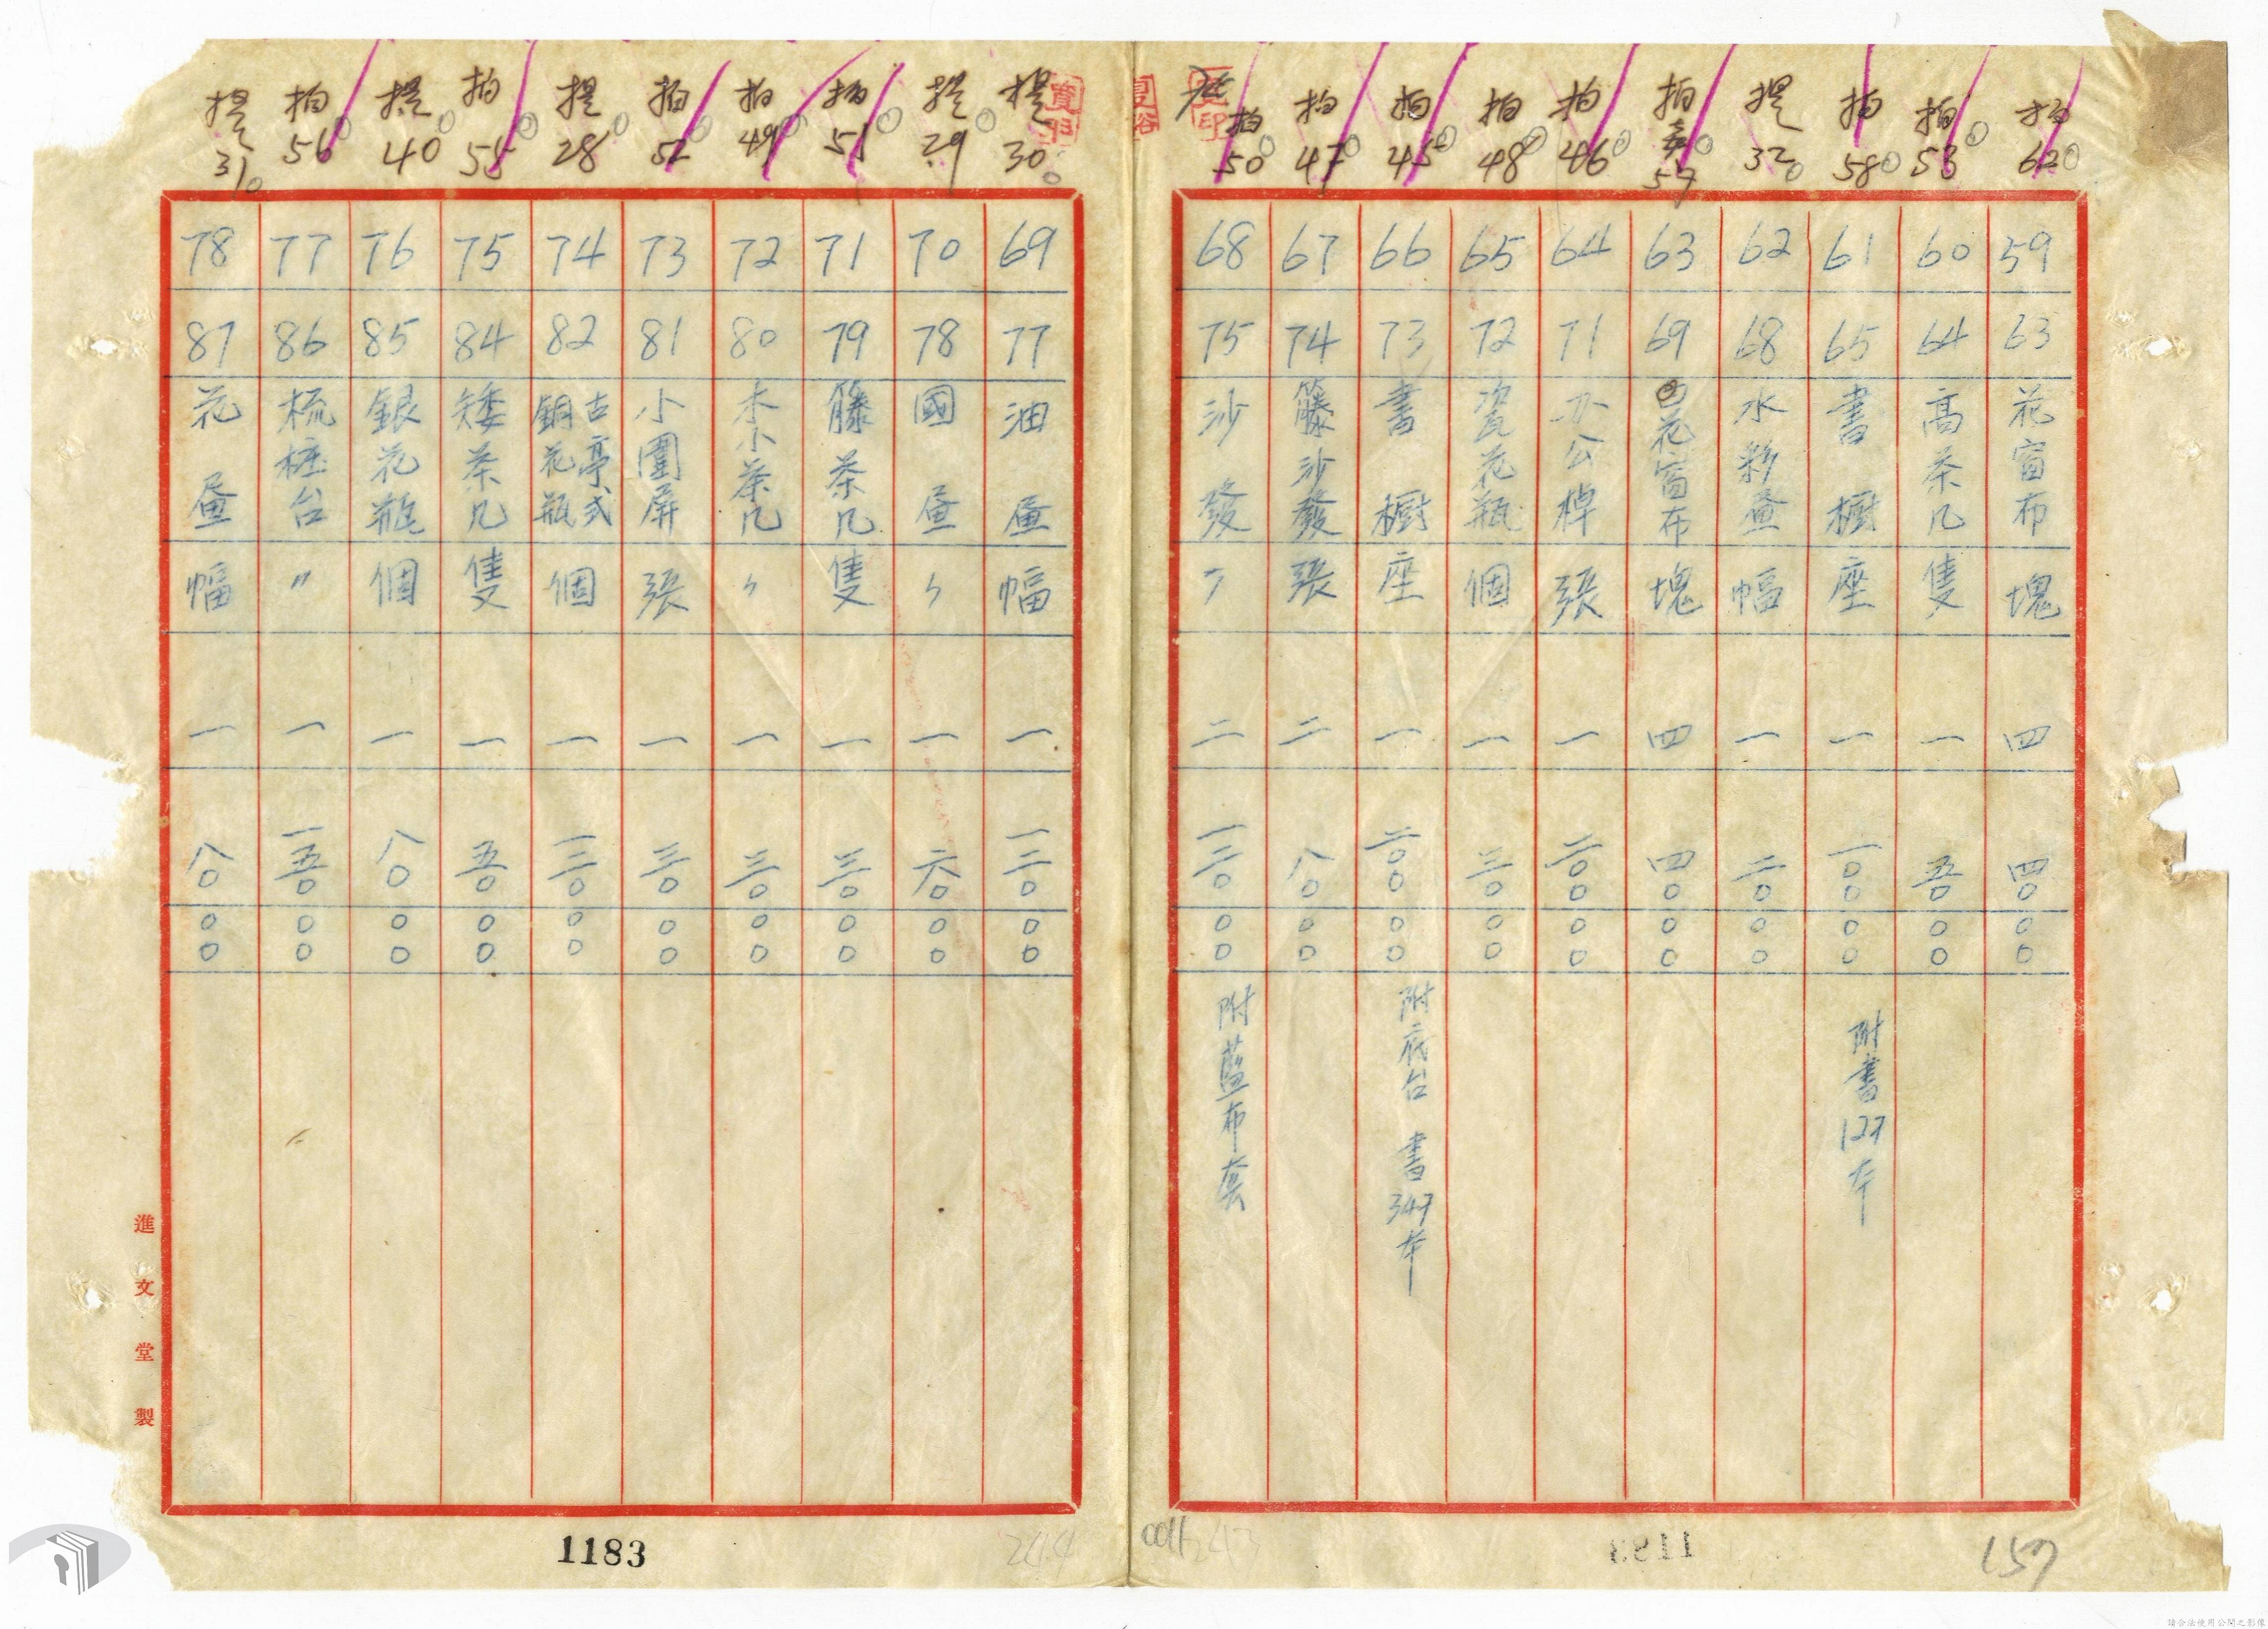 拍 62
59
63
花窗布
塊
四
四〇
〇〇
拍 53
60
64
高茶几
隻
一
五〇
〇〇
拍 58
61
65
書橱
座
一
一〇〇
〇〇
附書127本
提 32
62
68
水彩畫
幅
一
二〇
〇〇
拍 57
63
69
白花窗布
塊
四
四〇
〇〇
拍 46
64
71
办公棹
張
一
二〇〇
〇〇
拍 48
65
72
瓷花瓶
個
一
三〇
〇〇
拍 45
66
73
書橱
座
一
二〇〇
〇〇
附底台 書347本
拍 47
67
74
籐沙發
張
二
八〇
〇〇
拍 50
68
75
沙發
〃
二
一三〇
〇〇
附藍布套
提 30
69
77
油畫
幅
一
一三〇
〇〇
提 29
70
78
國畫
〃
一
六〇
〇〇
拍 51
71
79
籐茶几
隻
一
三〇
〇〇
拍 49
72
80
木小茶几
〃
一
三〇
〇〇
拍 52
73
81
小圍屏
張
一
三〇
〇〇
提 28
74
82
古亭式
銅花瓶
個
一
一三〇
〇〇
拍 55
75
84
矮茶几
隻
一
五〇
〇〇
提 40
76
85
銀花瓶
個
一
八〇
〇〇
拍 56
77
86
梳粧台
〃
一
一五〇
〇〇
提 31
78
87
花畫
幅
一
八〇
〇〇
進文堂製
1183
244
243
157
請合法使用公開之影像